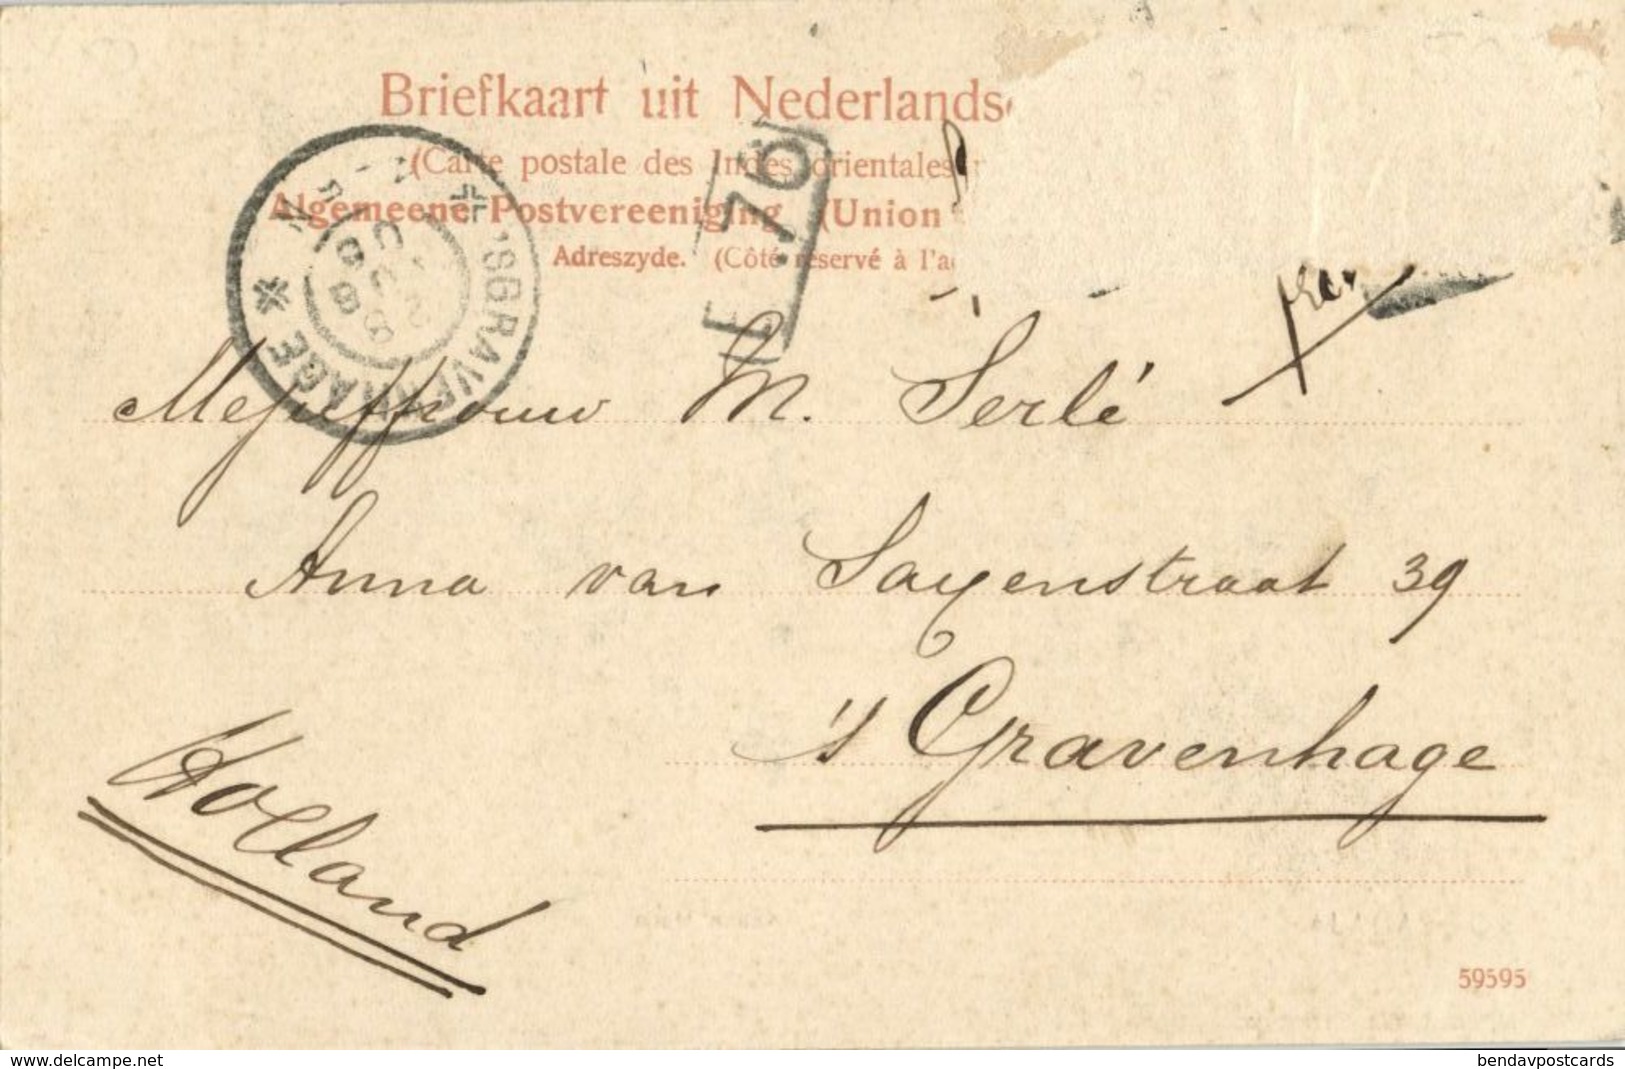 Briefkaart uit Nederlands
(Carte postale des Indes orientales
Algemeene Postvereeniging (Union
Adreszyde. (Côté réservé à l'a
'SGRAVENHAGE
76
Mejuffrouw M. Serlé
Anna van Sayenstraat 39
's Gravenhage
Holland
59595
www.delcampe.net
bendavpostcards